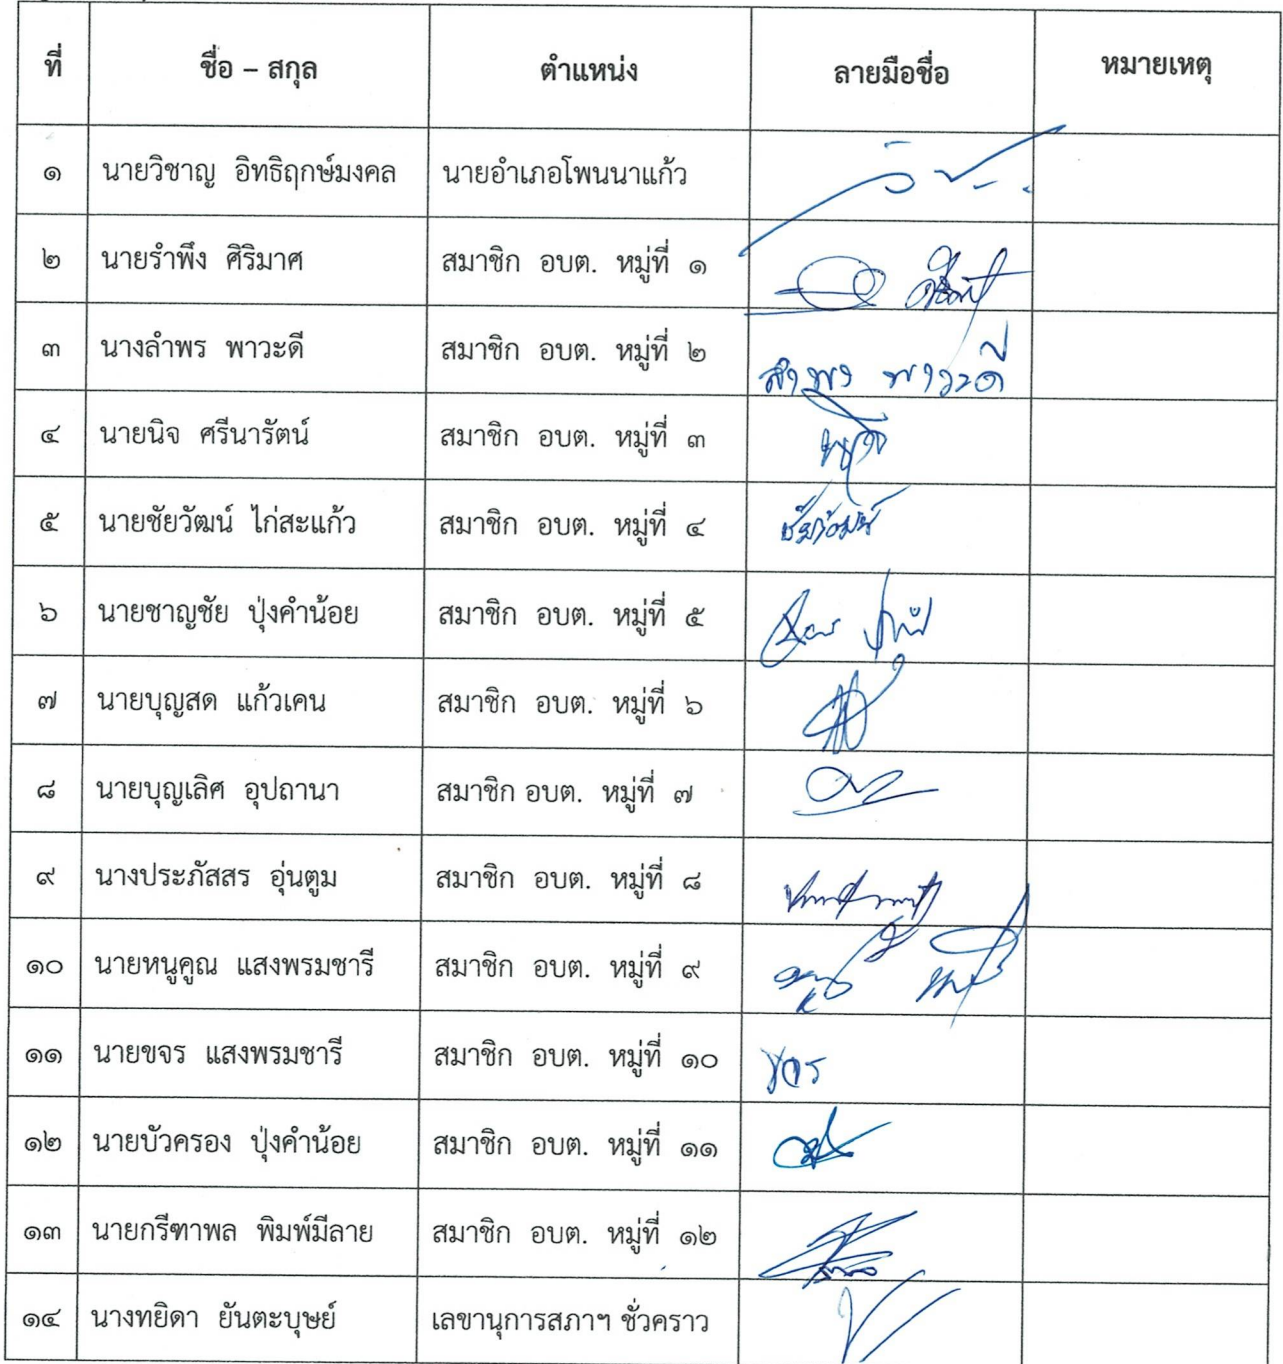 ที่ ชื่อ – สกุล ตำแหน่ง ลายมือชื่อ หมายเหตุ
๑ นายวิชาญ อิทธิฤกษ์มงคล นายอำเภอโพนนาแก้ว
๒ นายรำพึง ศิริมาศ สมาชิก อบต. หมู่ที่ ๑
๓ นางลำพร พาวะดี สมาชิก อบต. หมู่ที่ ๒ ลำพร พาวะดี
๔ นายนิจ ศรีนารัตน์ สมาชิก อบต. หมู่ที่ ๓
๕ นายชัยวัฒน์ ไก่สะแก้ว สมาชิก อบต. หมู่ที่ ๔ ชัยวัฒน์
๖ นายชาญชัย ปุ่งคำน้อย สมาชิก อบต. หมู่ที่ ๕
๗ นายบุญสด แก้วเคน สมาชิก อบต. หมู่ที่ ๖
๘ นายบุญเลิศ อุปถานา สมาชิก อบต. หมู่ที่ ๗
๙ นางประภัสสร อุ่นตูม สมาชิก อบต. หมู่ที่ ๘
๑๐ นายหนูคูณ แสงพรมชารี สมาชิก อบต. หมู่ที่ ๙
๑๑ นายขจร แสงพรมชารี สมาชิก อบต. หมู่ที่ ๑๐ ขจร
๑๒ นายบัวครอง ปุ่งคำน้อย สมาชิก อบต. หมู่ที่ ๑๑
๑๓ นายกรีฑาพล พิมพ์มีลาย สมาชิก อบต. หมู่ที่ ๑๒
๑๔ นางทยิดา ยันตะบุษย์ เลขานุการสภาฯ ชั่วคราว